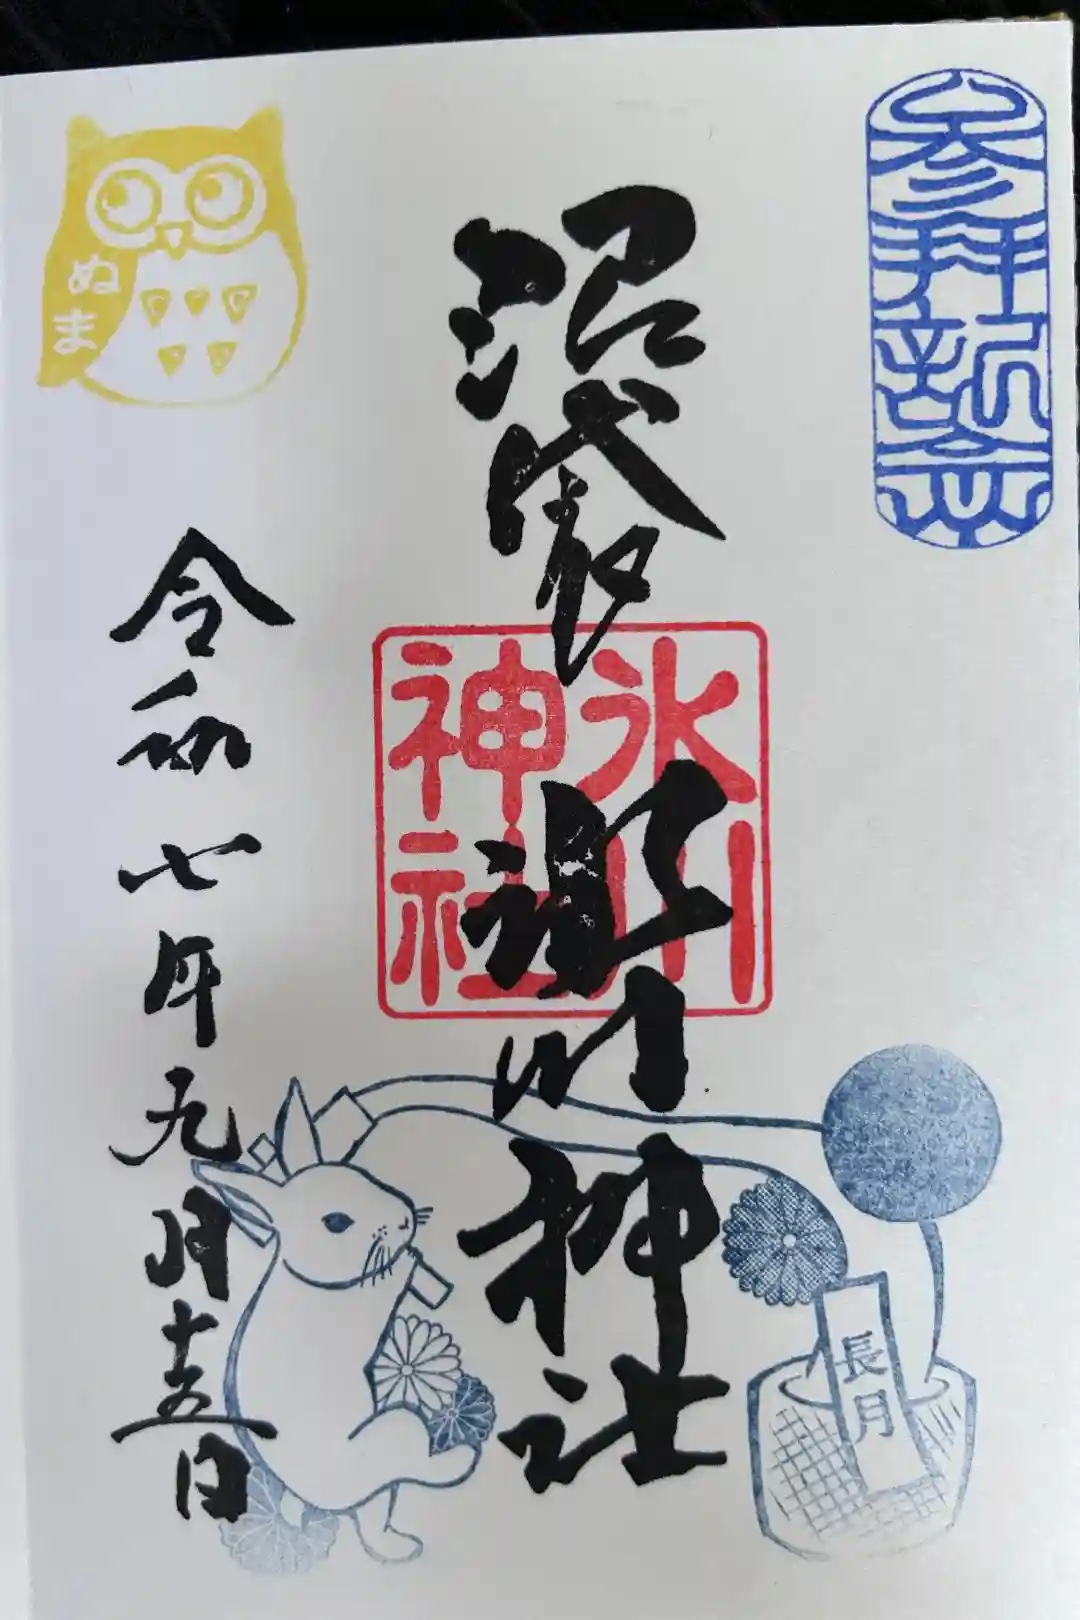 参拝記念
沼袋
氷川神社
氷川
神社
令和七年九月十五日
ぬま
長月